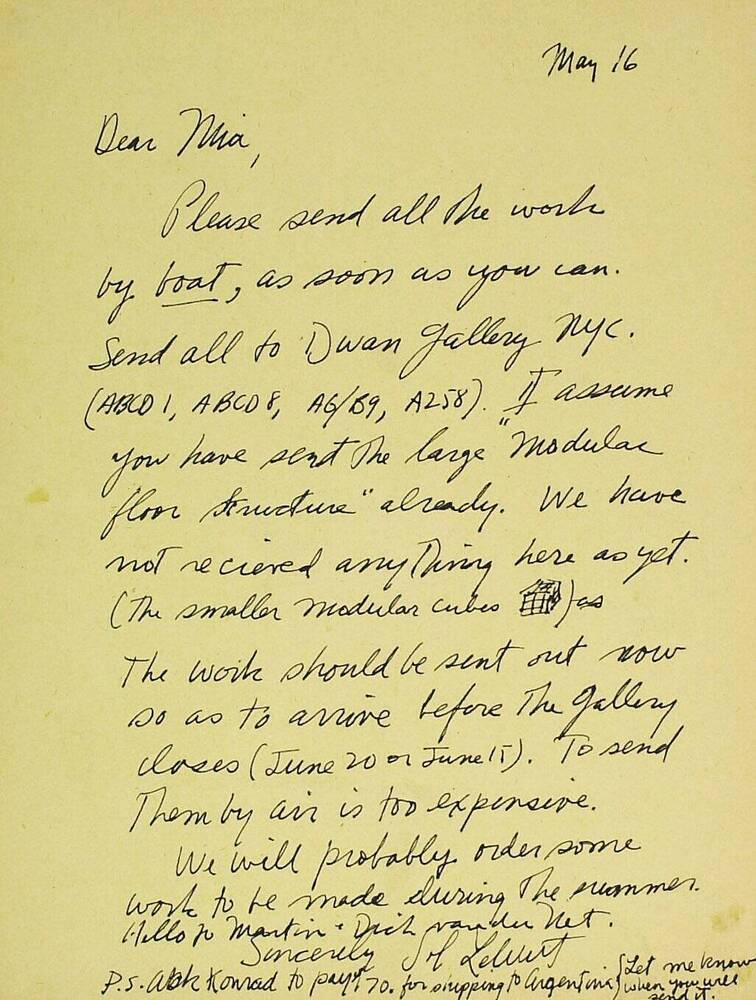 May 16
Dear Mia,
Please send all the work
by boat, as soon as you can.
Send all to Dwan Gallery NYC.
(ABCD 1, ABCD 8, A6/B9, A258). I assume
you have sent the large "Modular
floor structure" already. We have
not recieved anything here as yet.
(The smaller modular cubes ) as
The work should be sent out now
so as to arrive before the Gallery
closes (June 20 or June 15). To send
Them by air is too expensive.
We will probably order some
work to be made during the summer.
Hello to Martin + Dick van der Net.
Sincerely Sol LeWitt
P.S. Ask Konrad to pay $70. for shipping to Argentina {Let me know
when you will
send it.